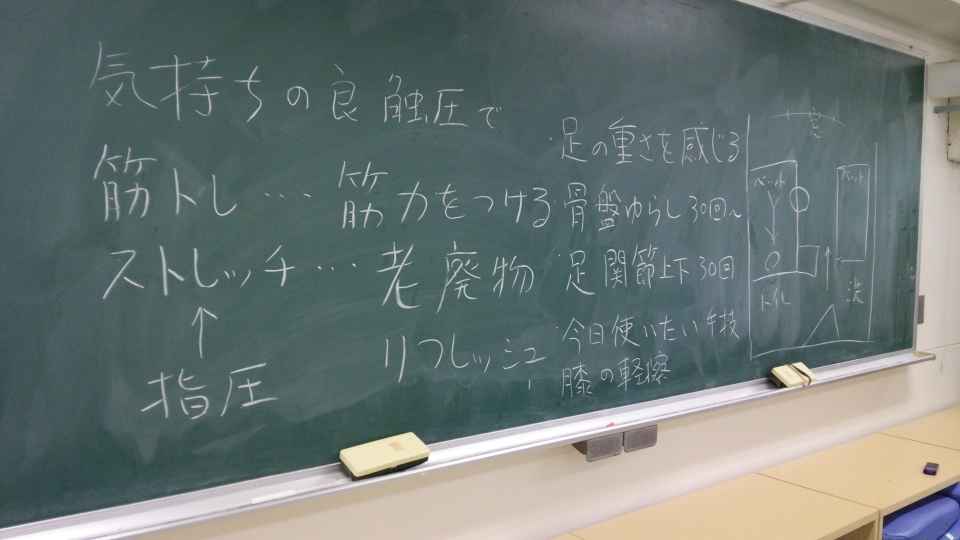 気持ちの良触圧で
筋トレ… 筋力をつける
ストレッチ… 老廃物
↑ リフレッシュ
指圧
・足の重さを感じる
骨盤ゆらし30回〜
足関節上下30回
今日使いたい手技
膝の軽擦
窓
ベット
ベット
トイレ